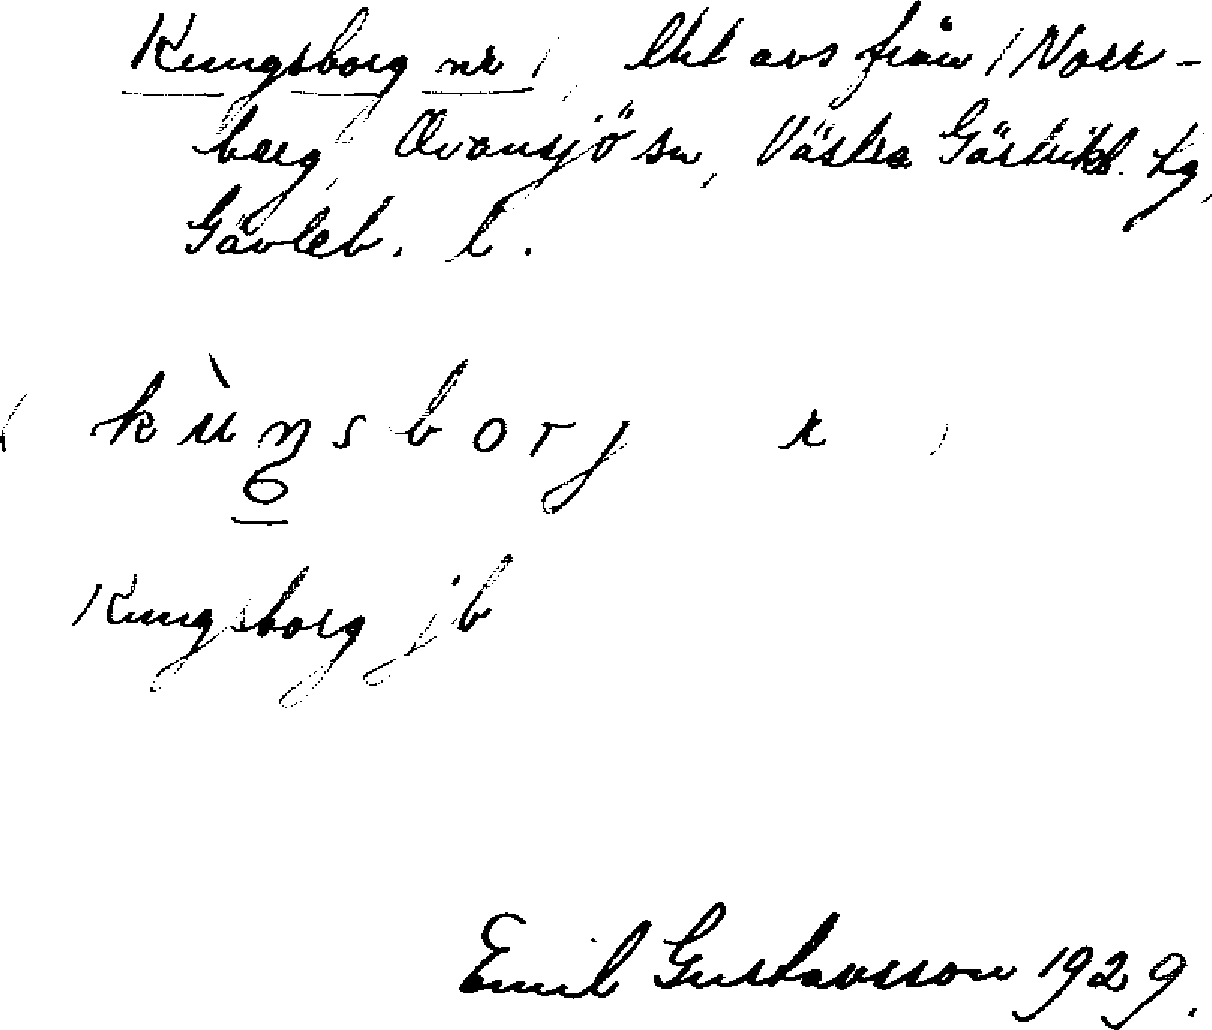 Kungsborg nr 1, lht avs från 1 Norr-
berg, Ovansjö sn, Västra Gästrikl. tg,
Gävleb. l.
kùŋsborj
Kungsborg jb
Emil Gustavsson 1929.